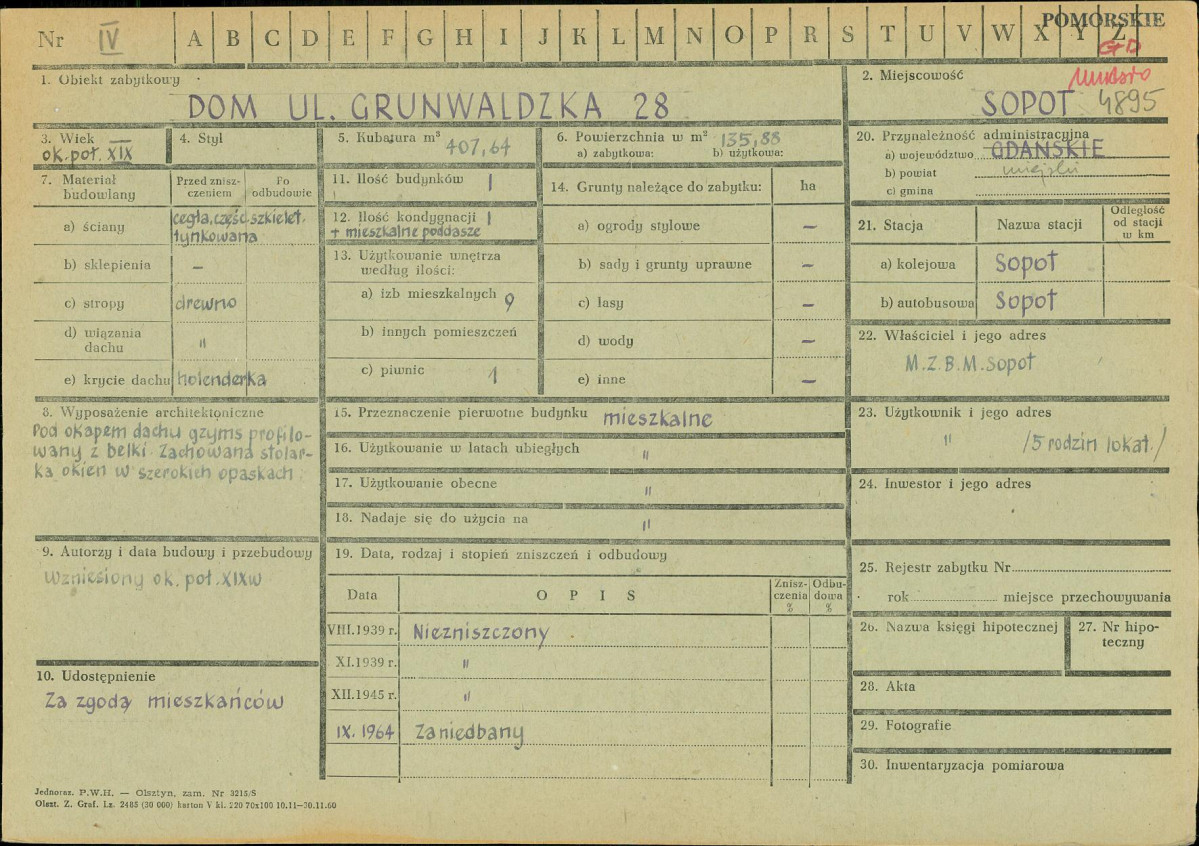 POMORSKIE
Nr IV A B C D E F G H I J K L M N O P R S T U V W X Y Z
GD
1. Obiekt zabytkowy
DOM UL. GRUNWALDZKA 28
2. Miejscowość
SOPOT 4895
3. Wiek
ok. poł. XIX
4. Styl
5. Kubatura m³ 407,64
6. Powierzchnia w m² 135,88
a) zabytkowa: b) użytkowa:
20. Przynależność administracyjna
a) województwo GDAŃSKIE
b) powiat miejski
c) gmina
7. Materiał budowlany
Przed zniszczeniem
Po odbudowie
a) ściany cegła, część szkielet.
tynkowana
b) sklepienia –
c) stropy drewno
d) wiązania dachu "
e) krycie dachu holenderka
11. Ilość budynków 1
12. Ilość kondygnacji 1
+ mieszkalne poddasze
13. Użytkowanie wnętrza
według ilości:
a) izb mieszkalnych 9
b) innych pomieszczeń
c) piwnic 1
14. Grunty należące do zabytku: ha
a) ogrody stylowe –
b) sady i grunty uprawne –
c) lasy –
d) wody –
e) inne –
21. Stacja Nazwa stacji Odległość od stacji w km
a) kolejowa Sopot
b) autobusowa Sopot
22. Właściciel i jego adres
M.Z.B.M. Sopot
8. Wyposażenie architektoniczne
Pod okapem dachu gzyms profilo-
wany z belki. Zachowana stolar-
ka okien w szerokich opaskach
15. Przeznaczenie pierwotne budynku mieszkalne
16. Użytkowanie w latach ubiegłych "
17. Użytkowanie obecne "
18. Nadaje się do użycia na "
23. Użytkownik i jego adres
" /5 rodzin lokat./
24. Inwestor i jego adres
9. Autorzy i data budowy i przebudowy
Wzniesiony ok. poł. XIXw
10. Udostępnienie
Za zgodą mieszkańców
19. Data, rodzaj i stopień zniszczeń i odbudowy
Data OPIS Znisz-czenia % Odbu-dowa %
VIII.1939 r. Niezniszczony
XI.1939 r. "
XII.1945 r. "
IX. 1964 Zaniedbany
25. Rejestr zabytku Nr
rok miejsce przechowywania
26. Nazwa księgi hipotecznej
27. Nr hipo-
teczny
28. Akta
29. Fotografie
30. Inwentaryzacja pomiarowa
Jednoraz. P.W.H. — Olsztyn, zam. Nr 3215/S
Olszt. Z. Graf. Lz. 2485 (30 000) karton V kl. 220 70x100 10.11—30.11.60